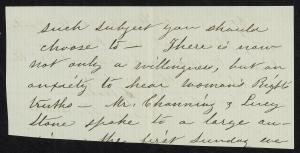 such subject you should
choose to — There is now
not only a willingness, but an
anxiety to hear woman's Rights
truths — Mr. Channing & Lucy
Stone spoke to a large au-
the first Sunday eve